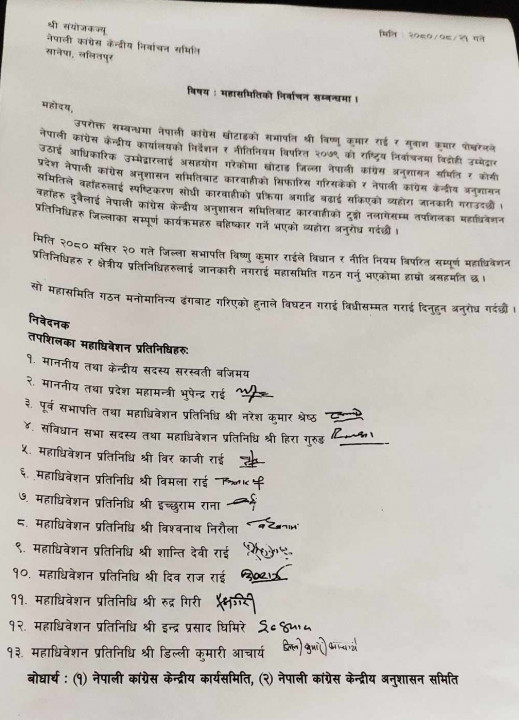 श्री संयोजकज्यू
नेपाली कांग्रेस केन्द्रीय निर्वाचन समिति
सानेपा, ललितपुर
मिति : २०८०/०८/२१ गते
विषय : महासमितिको निर्वाचन सम्बन्धमा ।
महोदय,
उपरोक्त सम्बन्धमा नेपाली कांग्रेस खोटाङको सभापति श्री विष्णु कुमार राई र सुवाश कुमार पोखरेलले
नेपाली कांग्रेस केन्द्रीय कार्यालयको निर्देशन र नीतिनियम विपरित २०७९ को राष्ट्रिय निर्वाचनमा विद्रोही उम्मेद्वार
उठाई आधिकारिक उम्मेद्वारलाई असहयोग गरेकोमा खोटाङ जिल्ला नेपाली कांग्रेस अनुशासन समिति र कोसी
प्रदेश नेपाली कांग्रेस अनुशासन समितिबाट कारवाहीको सिफारिस गरिसकेको र नेपाली कांग्रेस केन्द्रीय अनुशासन
समितिले वहाँहरुलाई स्पष्टिकरण सोधी कारवाहीको प्रक्रिया अगाडि बढाई सकिएको व्यहोरा जानकारी गराउदछौं ।
वहाँहरु दुवैलाई नेपाली कांग्रेस केन्द्रीय अनुशासन समितिबाट कारवाहीको टुङ्गो नलागेसम्म तपशिलका महाधिवेशन
प्रतिनिधिहरु जिल्लाका सम्पूर्ण कार्यक्रमहरु बहिष्कार गर्ने भएको व्यहोरा अनुरोध गर्दछौं ।
मिति २०८० मंसिर २० गते जिल्ला सभापति विष्णु कुमार राईले विधान र नीति नियम विपरित सम्पूर्ण महाधिवेशन
प्रतिनिधिहरु र क्षेत्रीय प्रतिनिधिहरुलाई जानकारी नगराई महासमिति गठन गर्नु भएकोमा हाम्रो असहमति छ ।
सो महासमिति गठन मनोमानिन्य ढंगबाट गरिएको हुनाले विघटन गराई विधीसम्मत गराई दिनुहुन अनुरोध गर्दछौं ।
निवेदनक
तपशिलका महाधिवेशन प्रतिनिधिहरु:
१. माननीय तथा केन्द्रीय सदस्य सरस्वती बजिमय
२. माननीय तथा प्रदेश महामन्त्री भुपेन्द्र राई
३. पूर्व सभापति तथा महाधिवेशन प्रतिनिधि श्री नरेश कुमार श्रेष्ठ
४. संविधान सभा सदस्य तथा महाधिवेशन प्रतिनिधि श्री हिरा गुरुङ
५. महाधिवेशन प्रतिनिधि श्री विर काजी राई
६. महाधिवेशन प्रतिनिधि श्री विमला राई
७. महाधिवेशन प्रतिनिधि श्री इच्छुराम राना
८. महाधिवेशन प्रतिनिधि श्री विश्वनाथ निरौला
९. महाधिवेशन प्रतिनिधि श्री शान्ति देवी राई
१०. महाधिवेशन प्रतिनिधि श्री दिव राज राई
११. महाधिवेशन प्रतिनिधि श्री रुद्र गिरी
१२. महाधिवेशन प्रतिनिधि श्री इन्द्र प्रसाद घिमिरे
१३. महाधिवेशन प्रतिनिधि श्री डिल्ली कुमारी आचार्य
बोधार्थ : (१) नेपाली कांग्रेस केन्द्रीय कार्यसमिति, (२) नेपाली कांग्रेस केन्द्रीय अनुशासन समिति